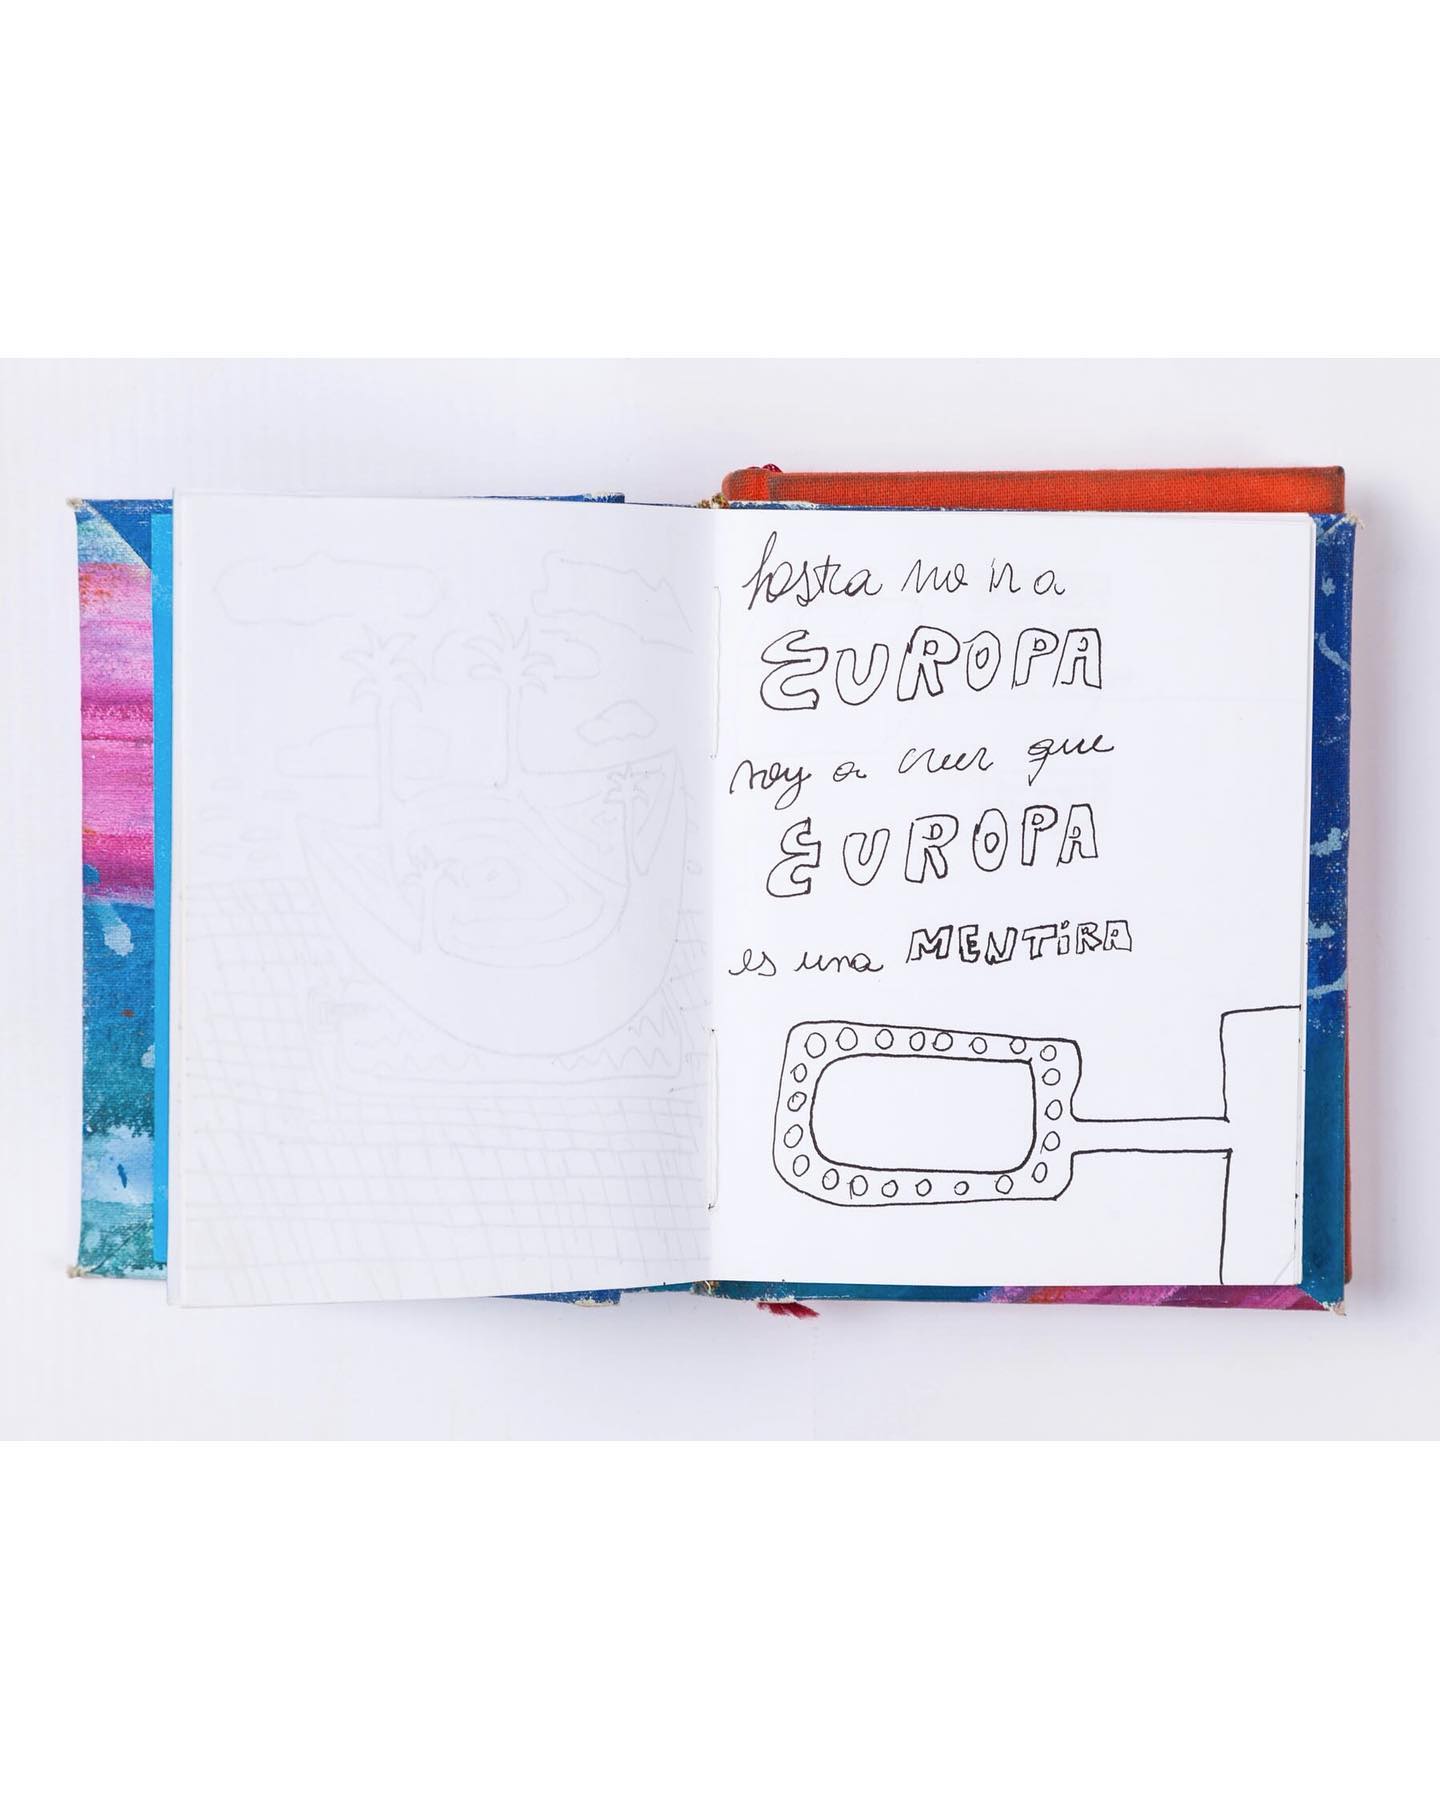 hasta no ir a
EUROPA
voy a creer que
EUROPA
es una MENTiRA